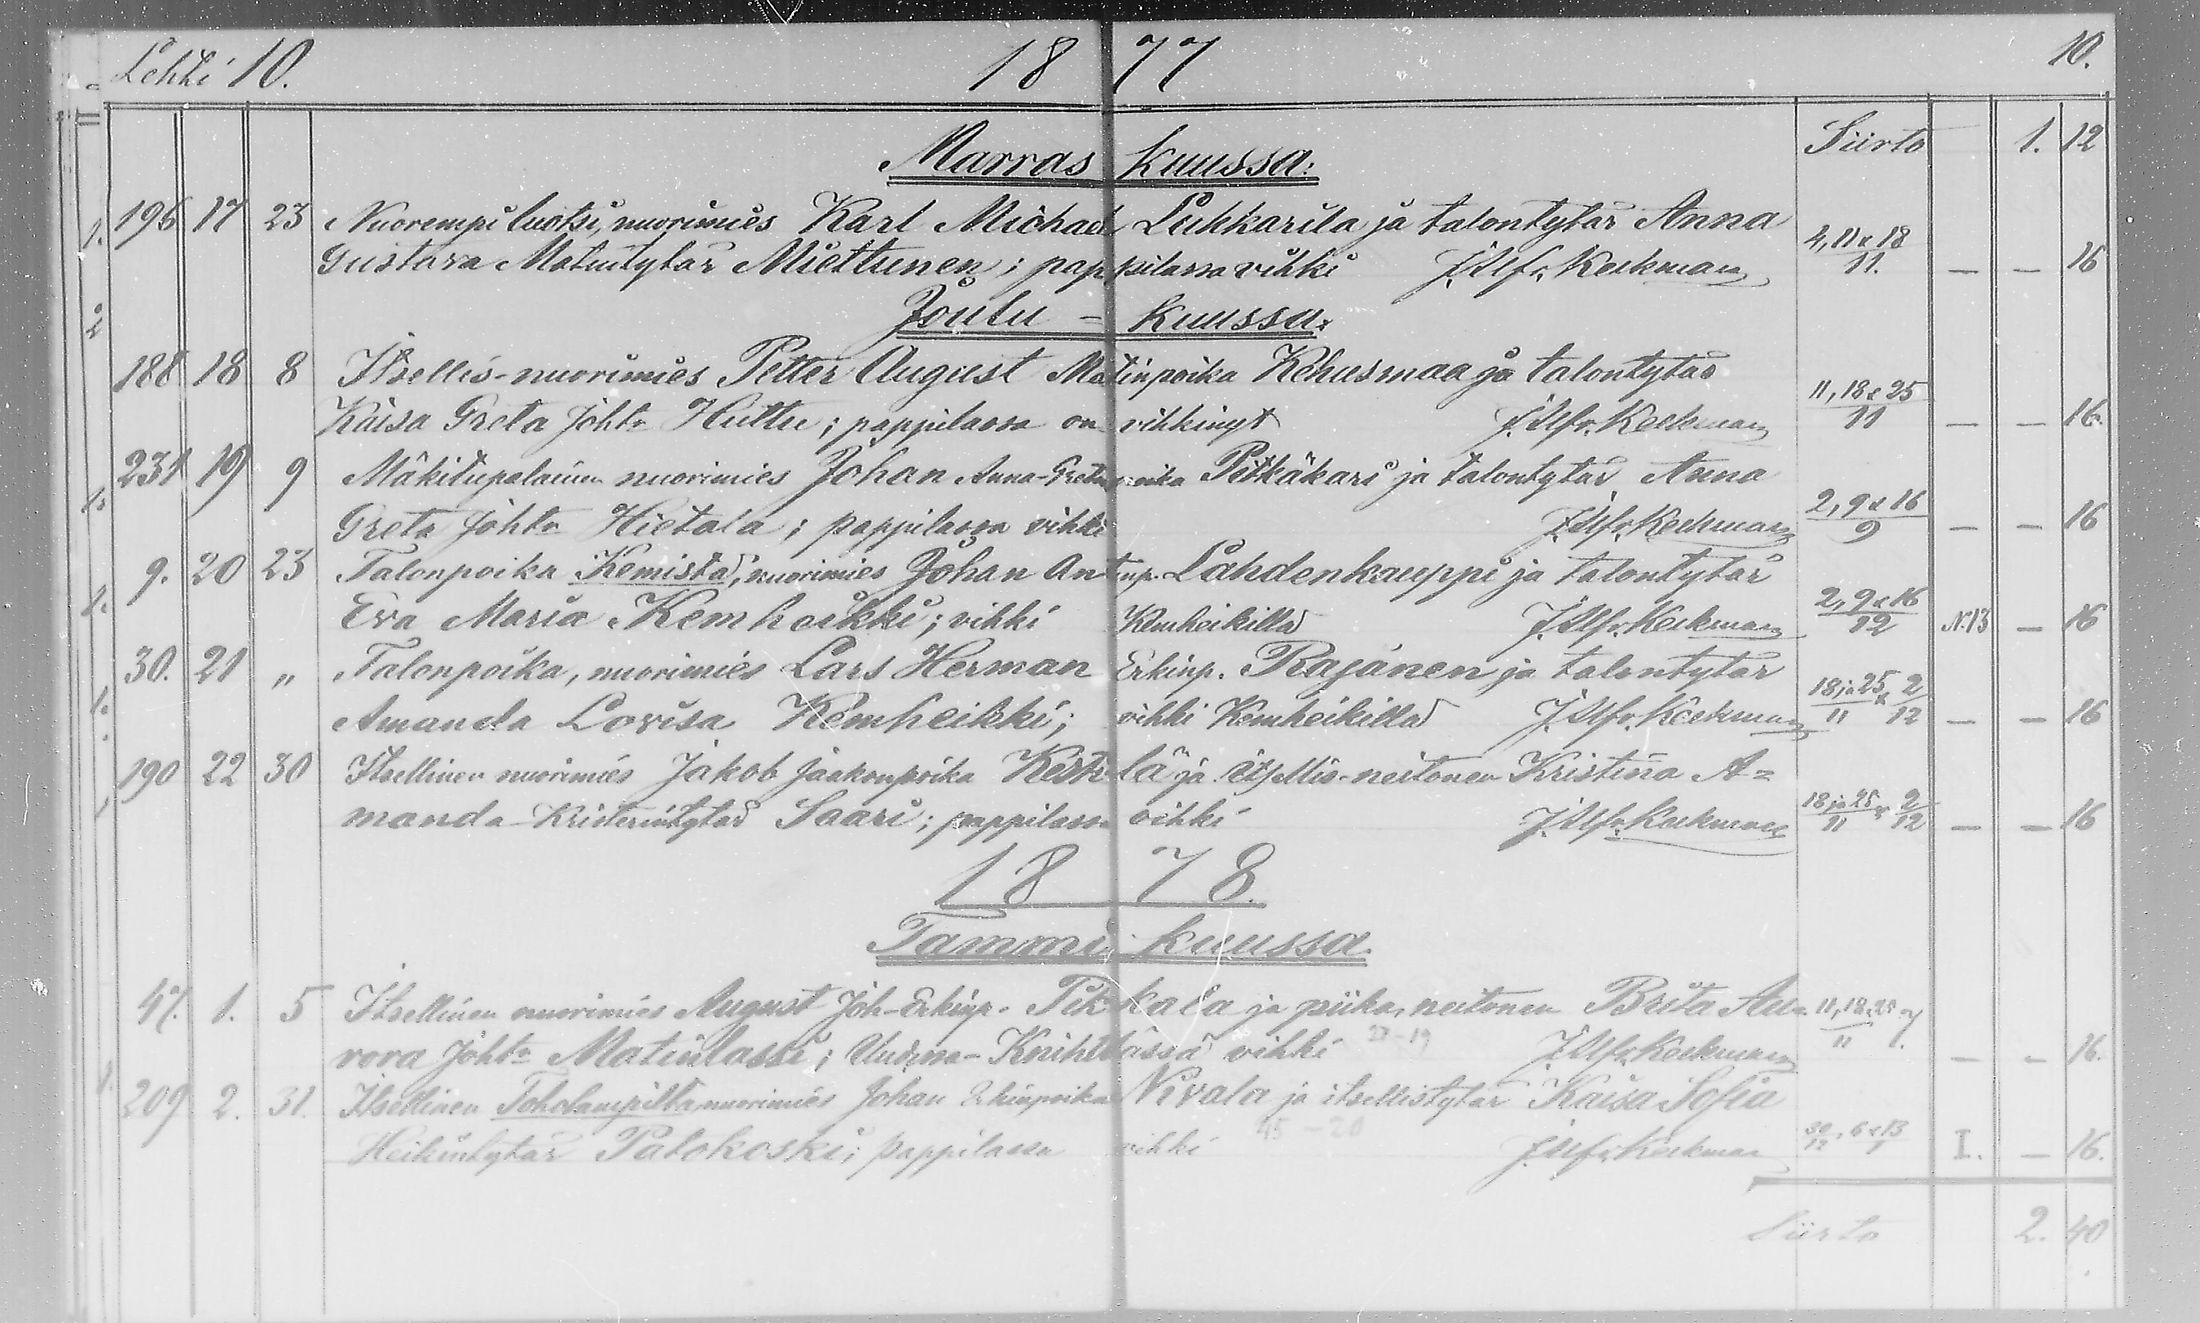 Lehti 10. 1877 10.
Siirto 1. 12
Marras kuussa:
1. 196 17 23 Nuorempi luotsi, nuorimies Karl Michael Luhkarila ja talontytär Anna 4, 11 & 18
Gustava Matintytär Miettunen; pappilassa vihki J. Alfr. Keckman 11. — — 16
2 Joulu - kuussa:
188 18 8 Itsellis-nuorimies Petter August Matinpoika Kehusmaa ja talontytär 11, 18 & 25
Kaisa Greta Joh:tr Huttu; pappilassa on vihkinyt J. Alfr. Keckman 11 — — 16.
1. 231 19 9 Mäkitupalainen nuorimies Johan Anna-Gretanpoika Pitkäkari ja talontytär Anna 2, 9 & 16
Greta Joh:tr Hietala; pappilassa vihki J. Alfr. Keckman 9 — — 16
9. 20 23 Talonpoika Kemistä, nuorimies Johan Antinp. Lahdenkauppi ja talontytär 2, 9 & 16
1. Eva Maria Kemheikki; vihki Kemheikillä J. Alfr. Keckman 12 N:13 — 16
30. 21 „ Talonpoika, nuorimies Lars Herman Erkinp. Rajanen ja talontytär 18 ja 25 & 2
1. Amanda Lovisa Kemheikki; vihki Kemheikillä J. Alfr. Keckman 11 12 — — 16
190 22 30 Itsellinen nuorimies Jakob Jaakonpoika Kestilä ja itsellis-neitonen Kristina A= 18 ja 25 & 2
manda Kristerintytär Saari; pappilassa vihki J. Alfr. Keckman 11 12 — — 16
1878.
Tammi kuussa
47. 1. 5 Itsellinen nuorimies August Joh-Erkinp. Pikkala ja piika, neitonen Brita Au= 11, 18, 25
rora Joh:tr Matinlassi; Uudena-Knihtilässä vihki J. Alfr. Keckman 11 — — 16.
1. 209 2. 31. Itsellinen Toholammilta, nuorimies Johan Erkinpoika Nivala ja itsellistytär Kaisa Sofia
Heikintytär Palokoski; pappilassa vihki 45-20 J. Alfr. Keckman 30/12, 6 & 13/1 I. — 16.
Siirto 2. 40